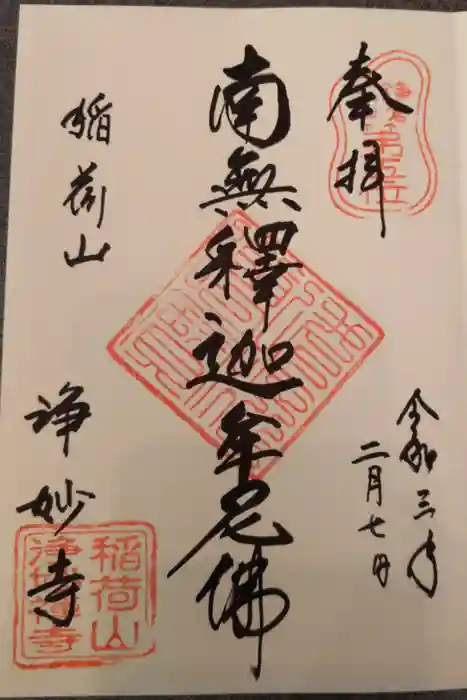 奉拝
令和三年
二月七日
南無釋迦牟尼佛
稲荷山
浄妙寺
稲荷山
浄妙禅寺